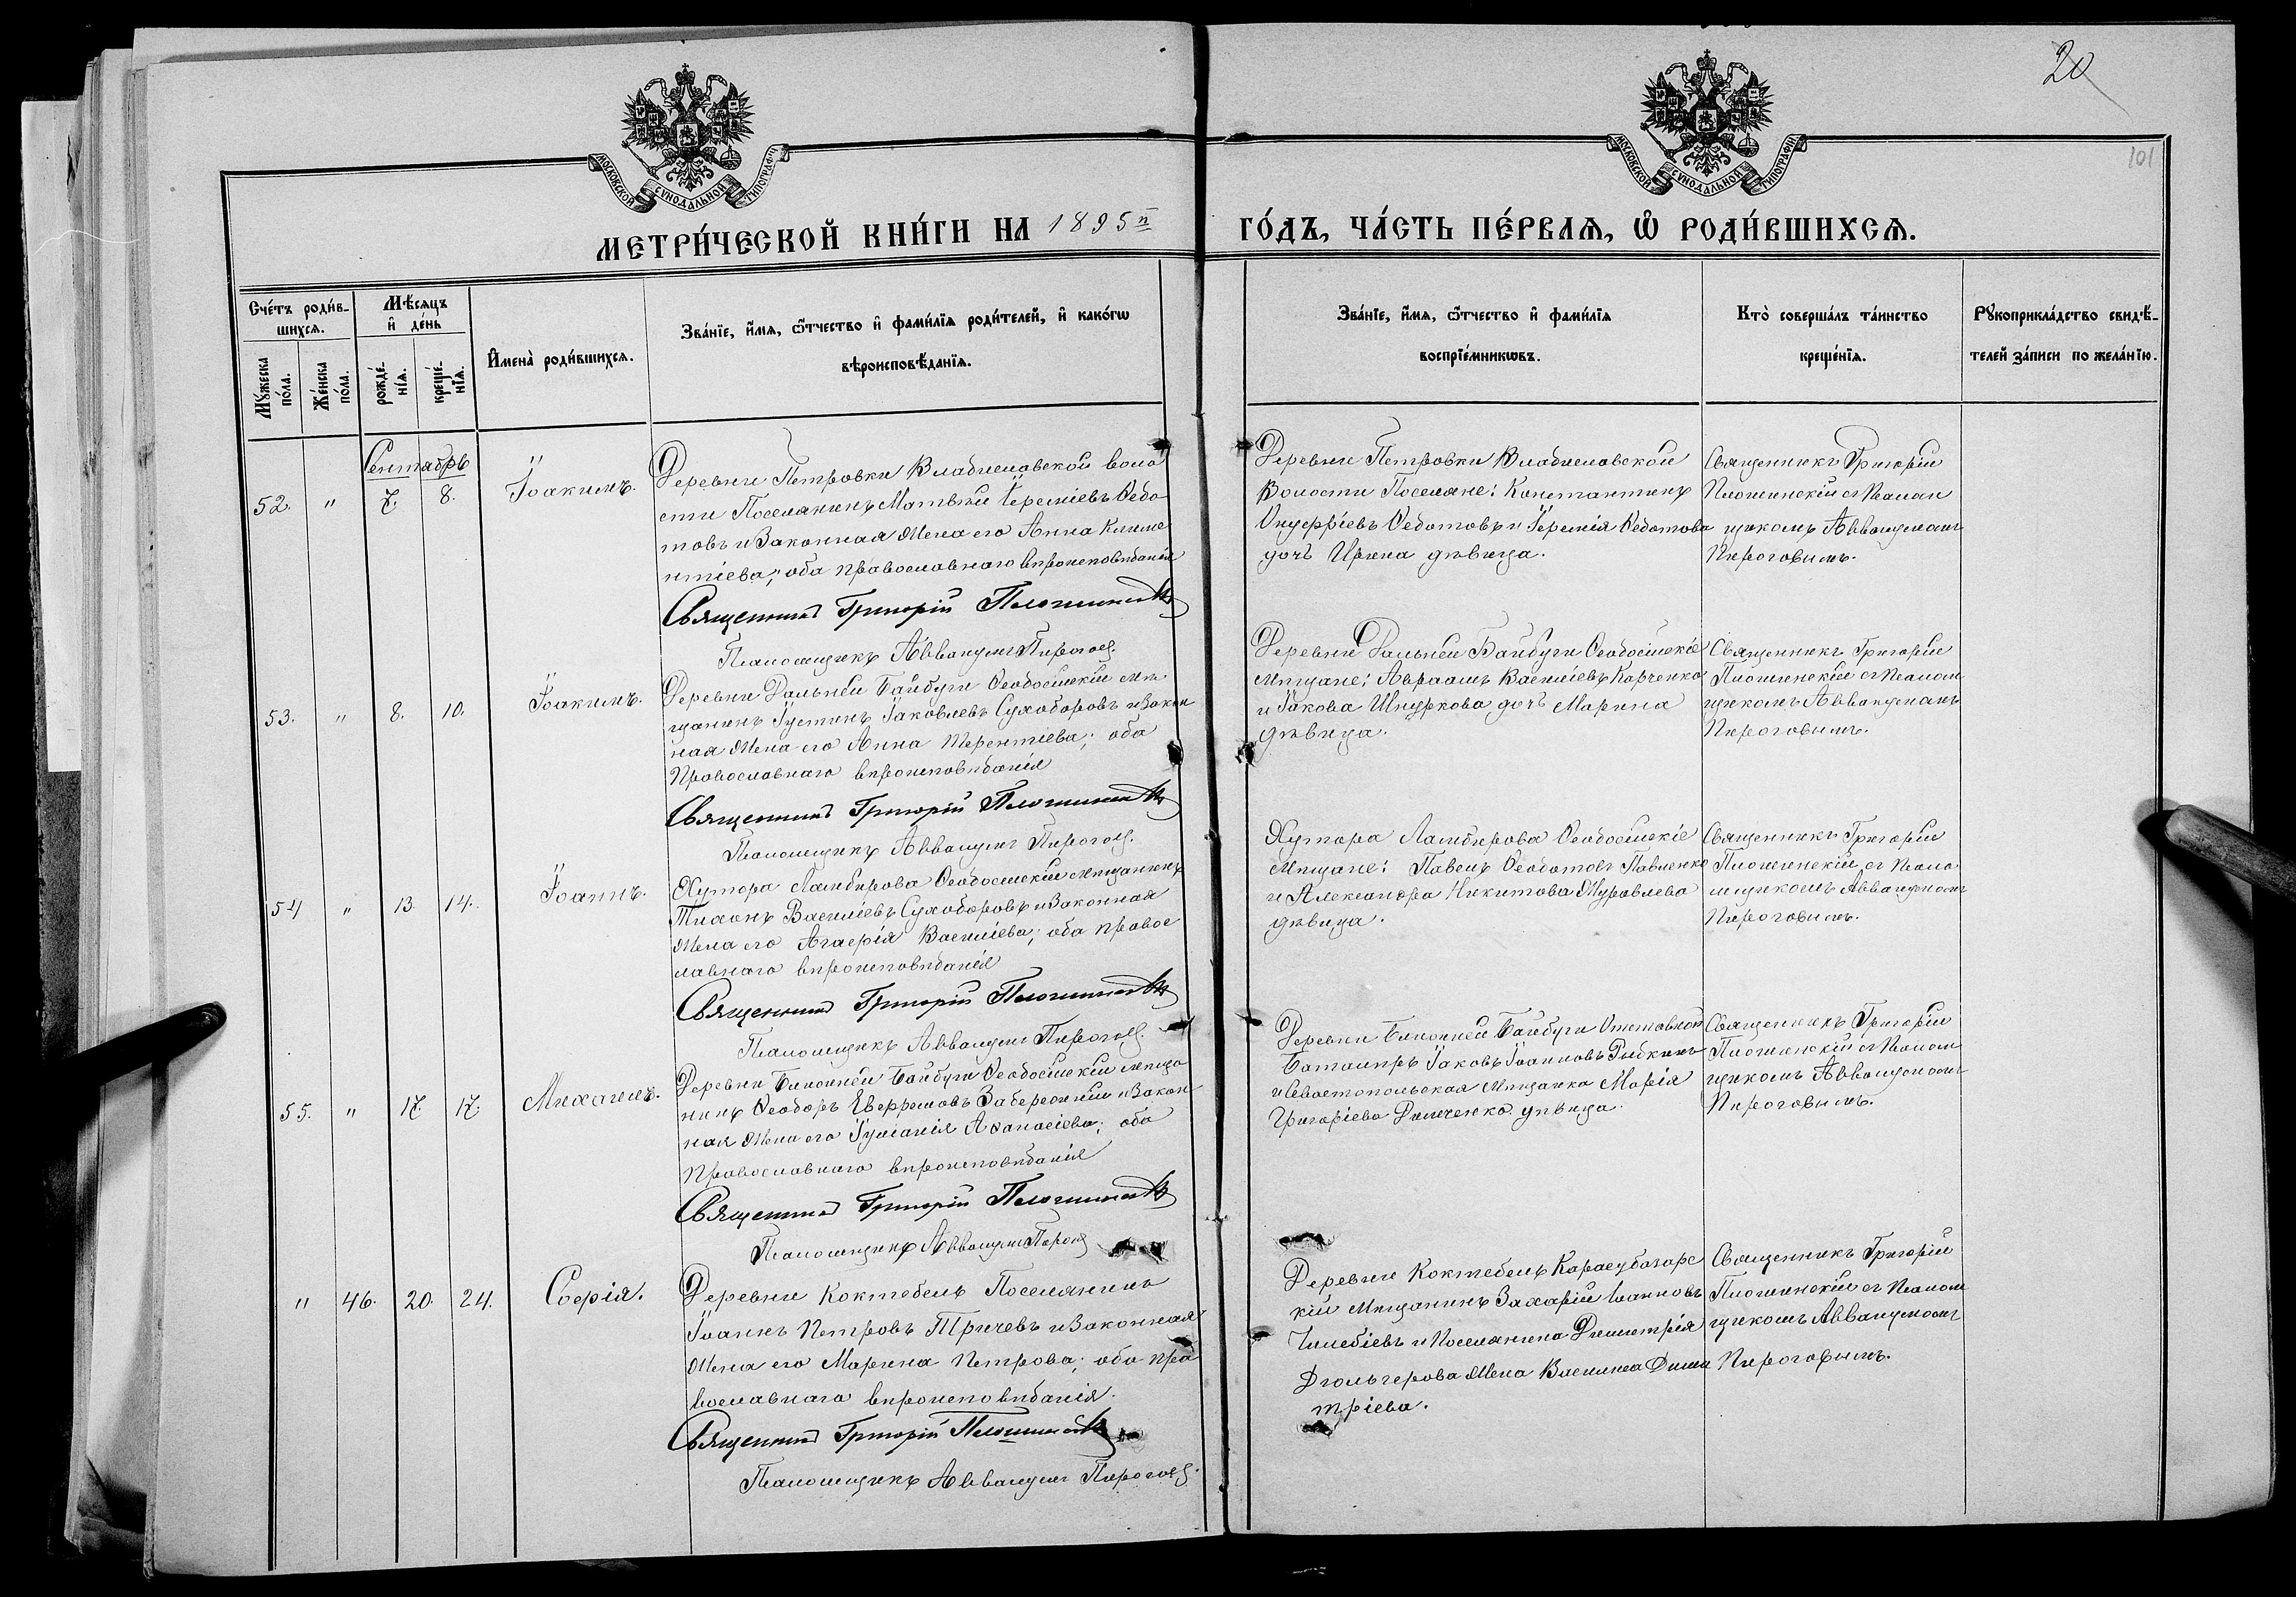 20
101
МОСКОВСКОЙ СѴНОДАЛЬНОЙ ТИПОГРАФІИ
МОСКОВСКОЙ СѴНОДАЛЬНОЙ ТИПОГРАФІИ
МЕТРИ́ЧЕСКОЙ КНИ́ГИ НА 1895й ГО́ДЪ, ЧА́СТЬ ПЕ́РВАЯ, Ѽ РОДИ́ВШИХСЯ.
Сче́тъ роди́в-
шихся.
Мѣ́сяцъ
и҆ де́нь
Мꙋ́жеска
по́ла.
Же́нска
по́ла.
рожде́-
нїя.
креще́-
нїя.
И҆мена̀ роди́вшихся.
Зва́нїе, и҆́мя, ѻ҆́тчество и҆ фами́лїя роди́телей, и҆ како́гѡ
вѣроисповѣ́данїя.
Зва́нїе, и҆́мя, ѻ҆́тчество и҆ фами́лїя
воспрїе́мникѡвъ.
Кто̀ соверша́лъ та́инство
креще́нїя.
Рꙋкоприкла́дство свидѣ́-
телей за́писи по жела́нїю.
Сентябрь
52. " 7. 8. Іоакимъ.
Деревни Петровки Владиславской воло
сти Поселянинъ Матвѣй Іереміевъ Ѳедо
товъ и Законная Жена его Анна Климе
нтіева; оба православнаго вѣроисповѣданія
Священникъ Григорій
Псаломщикъ Аввакумъ Пироговъ.
Деревни Петровки Владиславской
Волости Поселяне: Константинъ
Онуфріевъ Ѳедотовъ и Іеремія Ѳедотова
дочь Ирина дѣвица.
Священникъ Григорій
съ Псалом
щикомъ Аввакумомъ
Пироговымъ.
53. " 8. 10. Іоакимъ.
Деревни Дальней Байбуги Ѳеодосійскій мѣ
щанинъ Іустинъ Іаковлевъ Сухоборовъ и Закон
ная Жена его Анна Терентіева; оба
Православнаго вѣроисповѣданія
Священникъ Григорій
Псаломщикъ Аввакумъ Пироговъ.
Деревни Дальней Байбуги Ѳеодосійскіе
мѣщане: Авраамъ Василіевъ Карченко
и Іакова Шнуркова дочь Марина
дѣвица.
Священникъ Григорій
съ Псалом
щикомъ Аввакумомъ
Пироговымъ.
54 " 13. 14. Іоаннъ.
Хутора Ламбирова Ѳеодосійскій мѣщанинъ
Тихонъ Василіевъ Сухоборовъ и Законная
Жена его Агафія Василіева; оба правос
лавнаго вѣроисповѣданія
Священникъ Григорій
Псаломщикъ Аввакумъ Пироговъ.
Хутора Ламбирова Ѳеодосійскіе
Мѣщане: Павелъ Ѳеодотовъ Павленко
и Александра Никитова Журавлева
дѣвица.
Священникъ Григорій
съ Псало
мщикомъ Аввакумомъ
Пироговымъ.
55. " 17. 17. Михаилъ.
Деревни Ближней Байбуги Ѳеодосійскій мѣща
нинъ Ѳеодоръ Евфремовъ Забережній и Закон
ная Жена его Іуліанія Аѳанасіева; оба
Православнаго вѣроисповѣданія
Священникъ Григорій
Псаломщикъ Аввакумъ Пироговъ
Деревни Ближней Байбуги Отставной
Іаковъ Іоанновъ Рыбкинъ
и Севастопольская Мѣщанка Марія
Григоріева дѣвица.
Священникъ Григорій
съ Псалом
щикомъ Аввакумомъ
Пироговымъ.
" 46. 20. 24. Софія.
Деревни Коктебель Поселянинъ
Іоаннъ Петровъ Тричевъ и Законная
Жена его Марина Петрова; оба пра
вославнаго вѣроисповѣданія.
Священникъ Григорій
Псаломщикъ Аввакумъ Пироговъ.
Деревни Коктебель Карасубазарс
кій Мѣщанинъ Захарій Іоанновъ
Челебіевъ и Поселянина Димитрія
Дгольгерова Жена Василиса Дими
тріева.
Священникъ Григорій
съ Псалом
щикомъ Аввакумомъ
Пироговымъ.